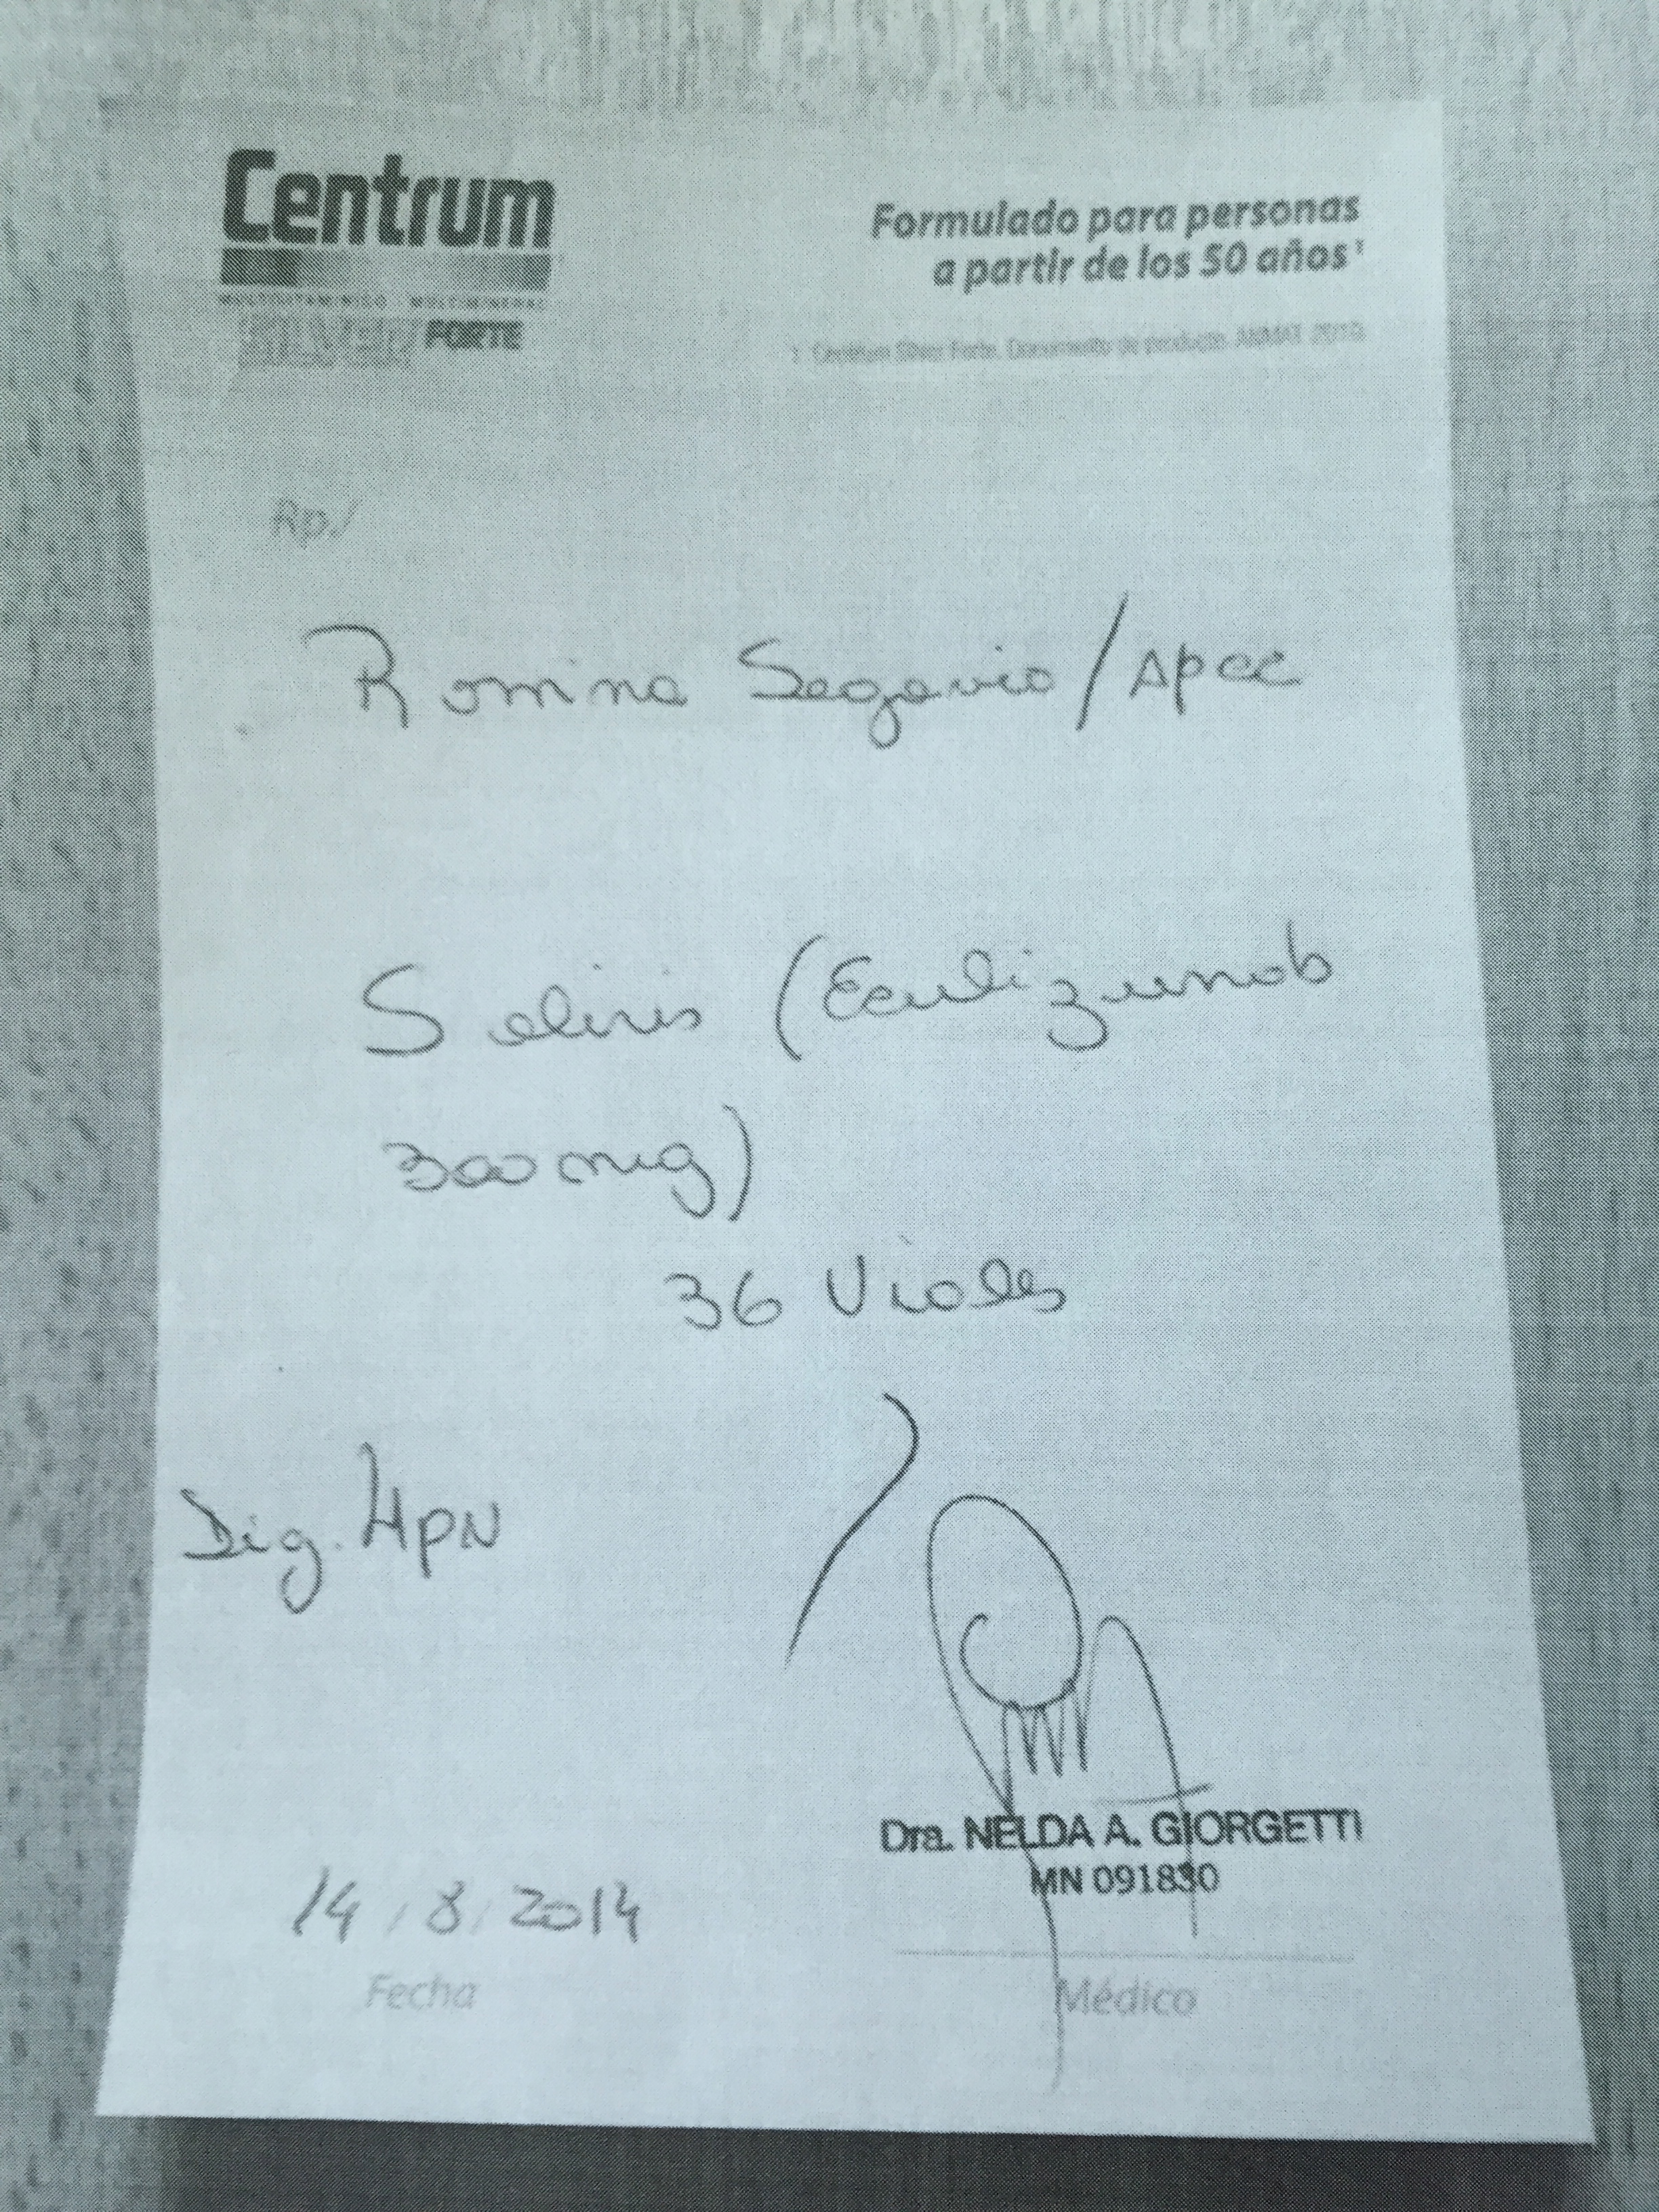 Centrum
MULTIVITAMINICO MULTIMINERAL
SILVER FORTE
Formulado para personas
a partir de los 50 años¹
1. Centrum Silver Forte. Documento de producto. ANMAT.
Rp./
Romina Segovia /
Soliris (Eculizumab
300 mg)
36 Viales
Dig. HPN
14/8/2014
Fecha
Dra. NELDA A. GIORGETTI
MN 091830
Médico